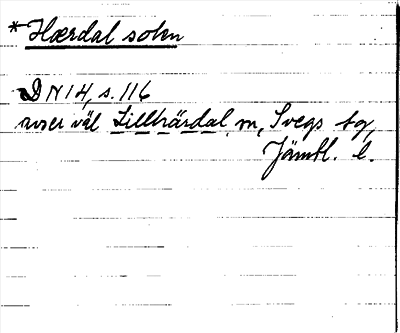 *Hærdal sokn
DN 14, s. 116
avser väl Lillhärdal sn, Svegs tg,
Jämtl. l.